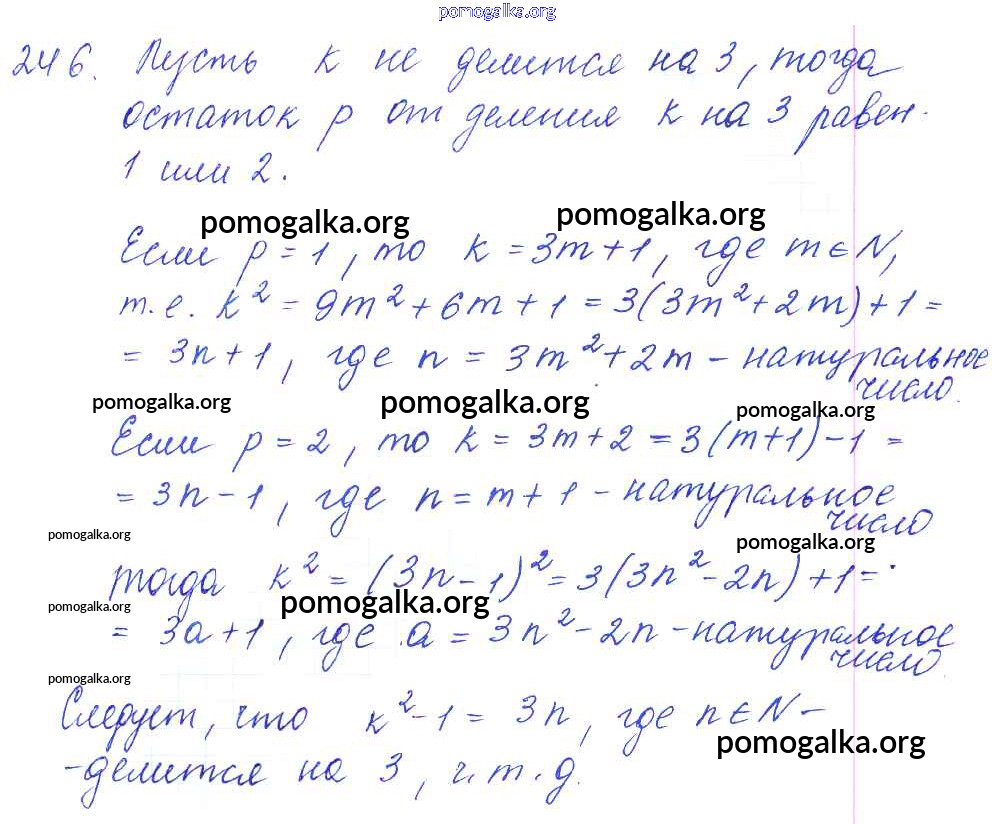 pomogalka.org
246. Пусть k не делится на 3, тогда
остаток p от деления k на 3 равен
1 или 2.
pomogalka.org pomogalka.org
Если p = 1, то k = 3m + 1, где m ∈ N,
т.е. k² = 9m² + 6m + 1 = 3(3m² + 2m) + 1 =
= 3n + 1, где n = 3m² + 2m – натуральное
число.
pomogalka.org pomogalka.org pomogalka.org
Если p = 2, то k = 3m + 2 = 3(m+1) – 1 =
= 3n – 1, где n = m + 1 – натуральное
число
pomogalka.org pomogalka.org
тогда k² = (3n – 1)² = 3(3n² – 2n) + 1 =
pomogalka.org pomogalka.org
= 3a + 1, где a = 3n² – 2n – натуральное
число
pomogalka.org
Следует, что k² – 1 = 3n, где n ∈ N –
pomogalka.org
– делится на 3, ч.т.д.